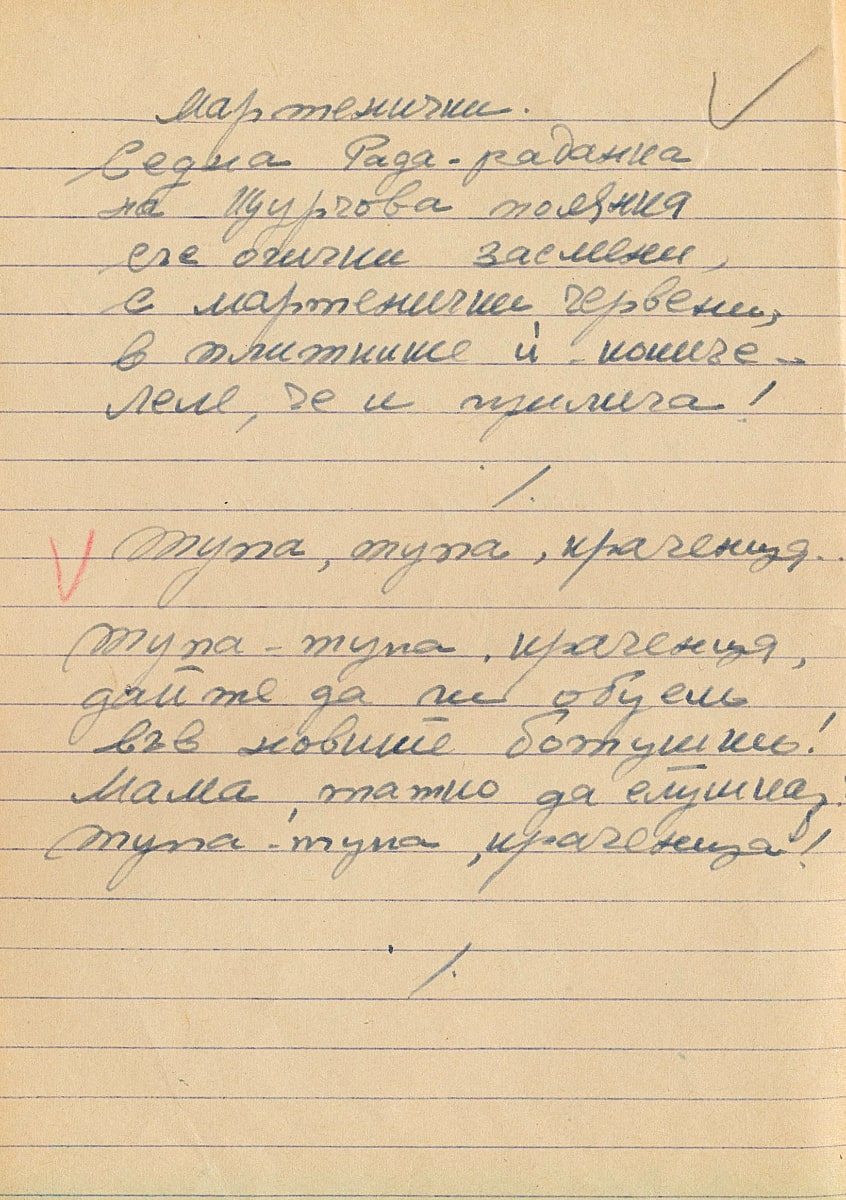 Мартенички.
Седна Рада-раданка
на Щурчова полянка
със очички засмени,
с мартенички червени,
в плитките ѝ - кокиче -
леле, че и прилича!
Тупа, тупа, краченца..
Тупа-тупа, краченца,
дайте да ги обуем
във новите ботушки!
Мама, татко да слушка,
тупа-тупа, краченца!